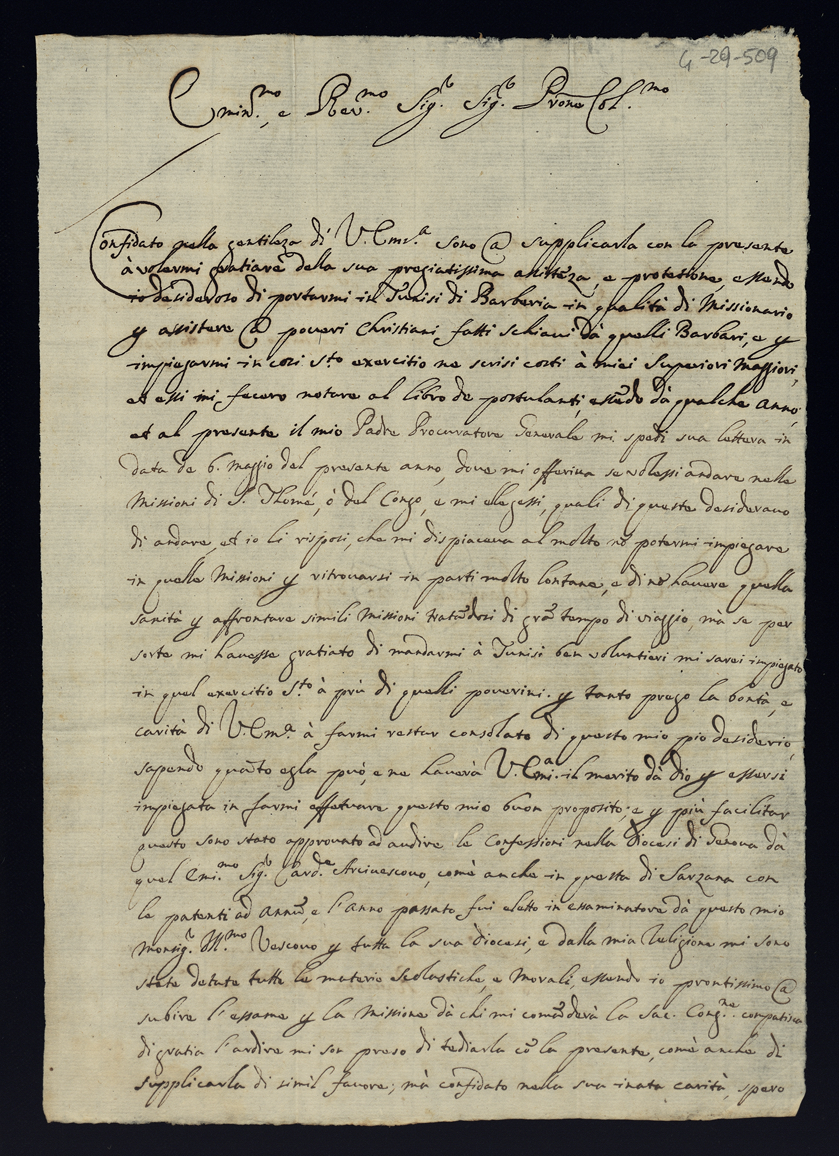 4-29-509
Emin.mo, e Rev.mo Sig.r Sig.r Prone Col.mo
Confidato nella gentileza di V. Emz.a sono @ supplicarla con la presente
à volermi gratiare della sua pregiatissima assisteza, e protettione, essendo
io desideroso di portarmi in Tunisi di Barberia in qualità di Missionario
y assistere @ poveri Christiani fatti schiaui dà quelli Barbari, e y
impiegarmi in così S.to exercitio ne scrisi costì à miei Superiori Maggiori,
et essi mi fecero notare al libro de portulanti, essedo dà qualche anno,
et al presente il mio Padre Procuratore Generale mi spedì sua lettera in
data de 6. Maggio del presente anno, dove mi offeriua se volessi andare nelle
Missioni di S. Thomé, ò del Congo, e mi elegessi, quali di queste desiderauo
di andare, et io li risposi, che mi dispiaceua al molto nō potermi impiegare
in quelle Missioni y ritrouarsi in parti molto lontane, e di nō hauere quella
sanità y affrontare simili Missioni tratadosi di grā tempo di viaggio, mà se per
sorte mi hauesse gratiato di mandarmi à Tunisi ben voluntieri mi sarei impiegato
in quel exercitio S.to à prù di quelli pouerini. y tanto prego la bontà, e
carità di V. Em.a à farmi restar consolato di questo mio pio desiderio,
sapendo quato egla può, e ne hauerà V. Emi.a il merito dà Dio y essersi
impiegata in farmi effetuare questo mio buon proposito; e y più facilitar
questo sono stato approuato ad audire le Confessioni nella Diocesi di Genoua dà
quel Emi.mo Sig.r Card.e Arciuescouo, comè anche in questa di Sarzana con
le patenti ad annū, e l'anno passato fui eletto in essaminatore dà questo mio
Monsig.r Ill.mo Vescouo y tutta la sua diocesi, e dalla mia Religione mi sono
state detate tutte le materie Scolastiche, e Morali, essendo io prontissimo @
subire l'essame y la Missione dà chi mi comāderà la Sac. Cong.ne compatisca
di gratia l'ardire mi son preso di tediarla cō la presente, comè anche di
supplicarla di simil fauore; mà confidato nella sua inata carità, spero